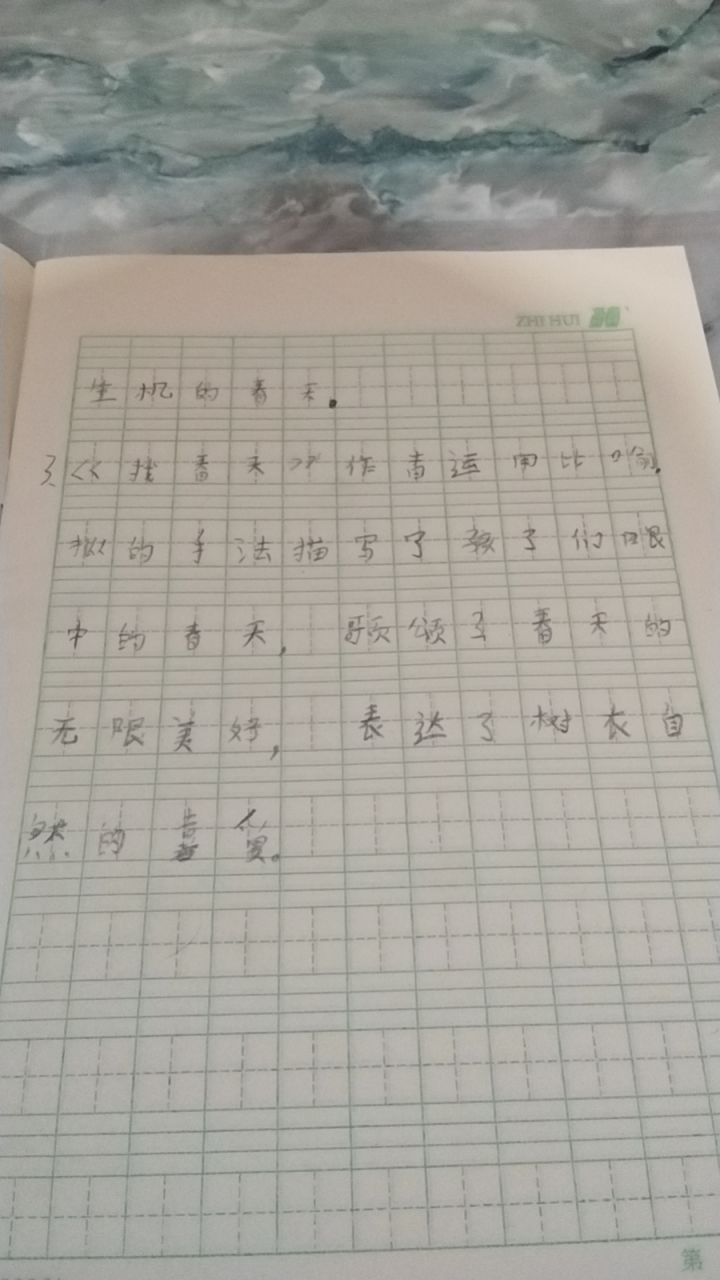 ZHI HUI
生机的春天.
3、《找春天》作者运用比喻,
拟的手法描写了孩子们眼
中的春天, 歌颂了春天的
无限美好, 表达了树衣自
然的喜爱。
第